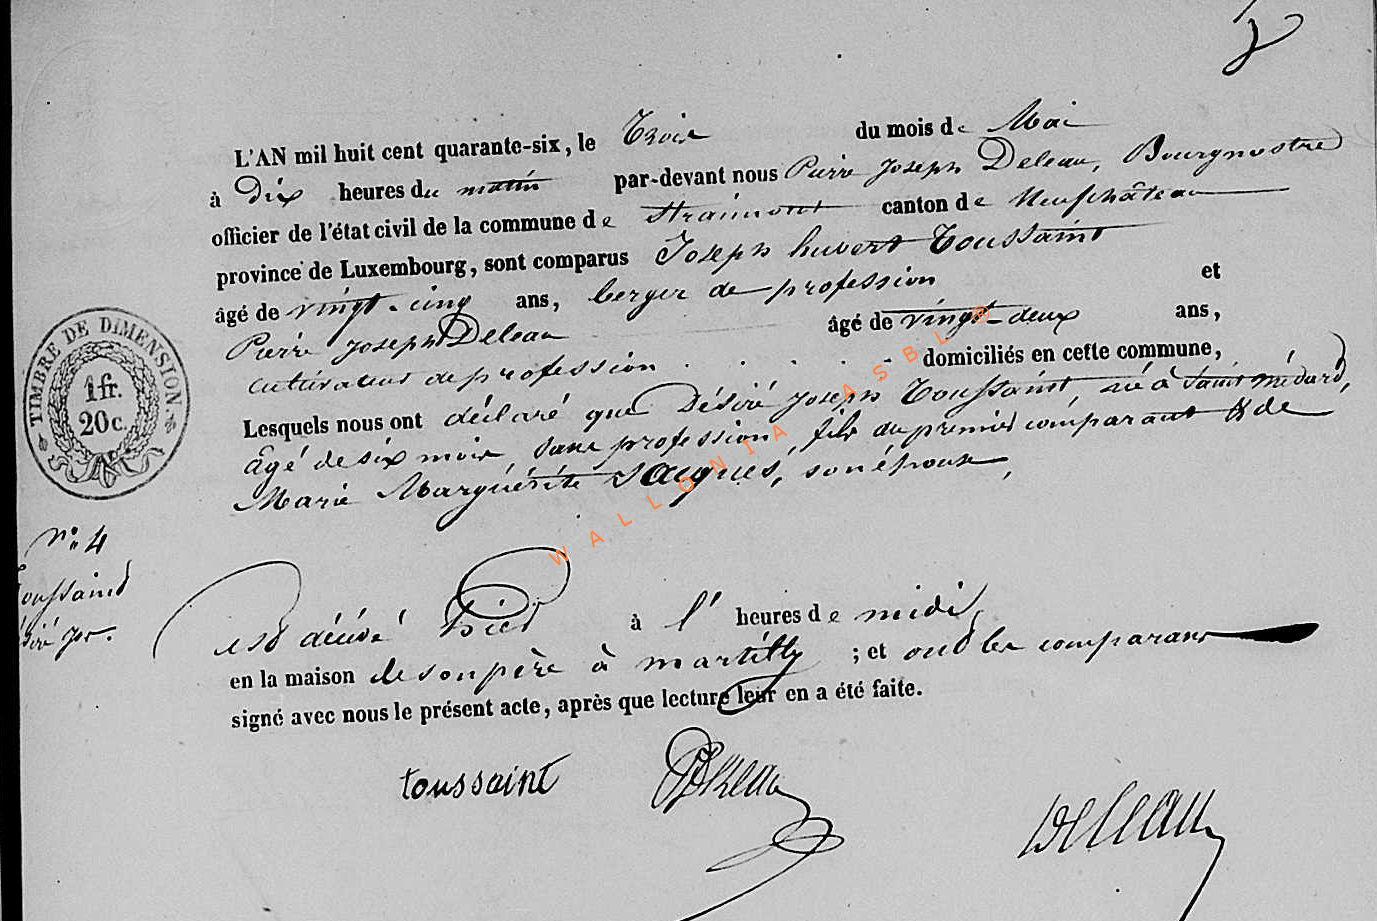 L'AN mil huit cent quarante-six, le Trois du mois de Mai
à Dix heures du matin par-devant nous Pierre Joseph Deleau, Bourgmestre
officier de l'état civil de la commune de Straimont canton de Neufchâteau
province de Luxembourg, sont comparus Joseph hubert Toussaint
âgé de vingt-cinq ans, berger de profession et
Pierre Joseph Deleau âgé de vingt-deux ans,
cultivateur de profession domiciliés en cette commune,
Lesquels nous ont déclaré que Désiré Joseph Toussaint, né à Saint médard,
âgé de six mois sans profession, fils du premier comparant & de
Marie Marguérite Jacques, son épouse,
est décédé hier à l' heures de midi,
en la maison de son père à martilly ; et ont les comparans
signé avec nous le présent acte, après que lecture leur en a été faite.
toussaint Deleau
Deleau
TIMBRE DE DIMENSION
1 fr.
20 c.
N°. 4
Toussaint
Désiré Jos.
WALLONIA ASBL